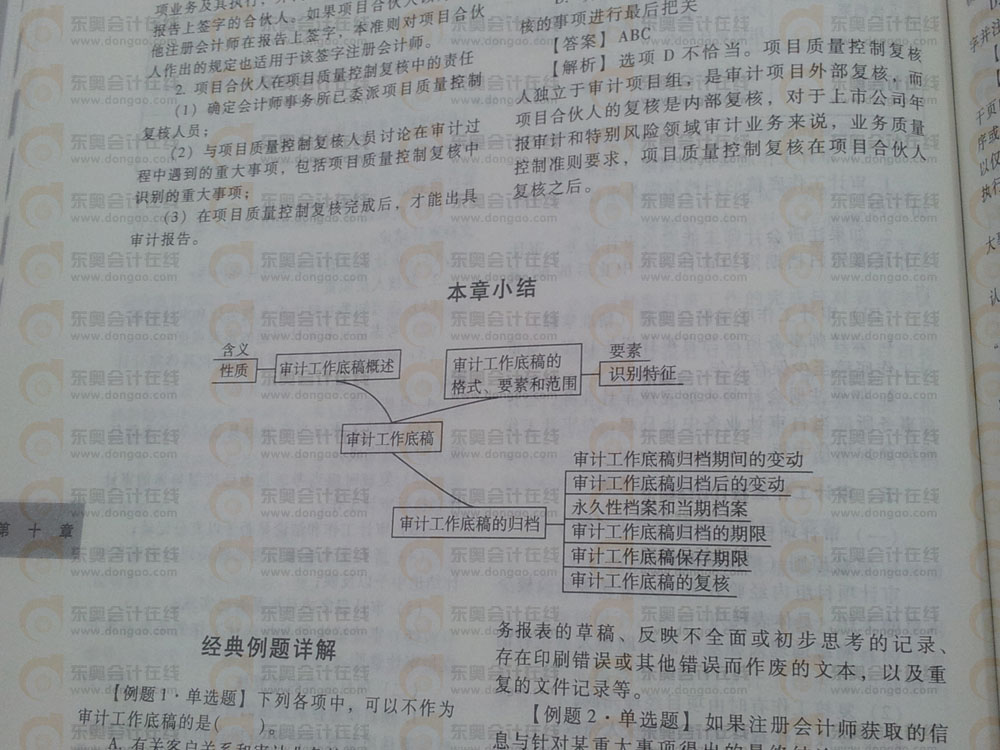 报告上签字的合伙人。如果项目合伙人以外
他注册会计师在报告上签字，本准则对项目合伙
人作出的规定也适用于该签字注册会计师。
2. 项目合伙人在项目质量控制复核中的责任
（1）确定会计师事务所已委派项目质量控制
复核人员；
（2）与项目质量控制复核人员讨论在审计过
程中遇到的重大事项，包括项目质量控制复核中
识别的重大事项；
（3）在项目质量控制复核完成后，才能出具
审计报告。
核的事项进行最后把关
【答案】ABC
【解析】选项 D 不恰当。项目质量控制复核
人独立于审计项目组，是审计项目外部复核，而
项目合伙人的复核是内部复核，对于上市公司年
报审计和特别风险领域审计业务来说，业务质量
控制准则要求，项目质量控制复核在项目合伙人
复核之后。
本章小结
含义
性质
审计工作底稿概述
审计工作底稿的
格式、要素和范围
要素
识别特征
审计工作底稿
审计工作底稿的归档
审计工作底稿归档期间的变动
审计工作底稿归档后的变动
永久性档案和当期档案
审计工作底稿归档的期限
审计工作底稿保存期限
审计工作底稿的复核
第十章
经典例题详解
【例题 1·单选题】下列各项中，可以不作为
审计工作底稿的是（　　）。
务报表的草稿、反映不全面或初步思考的记录、
存在印刷错误或其他错误而作废的文本，以及重
复的文件记录等。
【例题 2·单选题】如果注册会计师获取的信
息与针对某重大事项得出的最终结
东奥会计在线
www.dongao.com